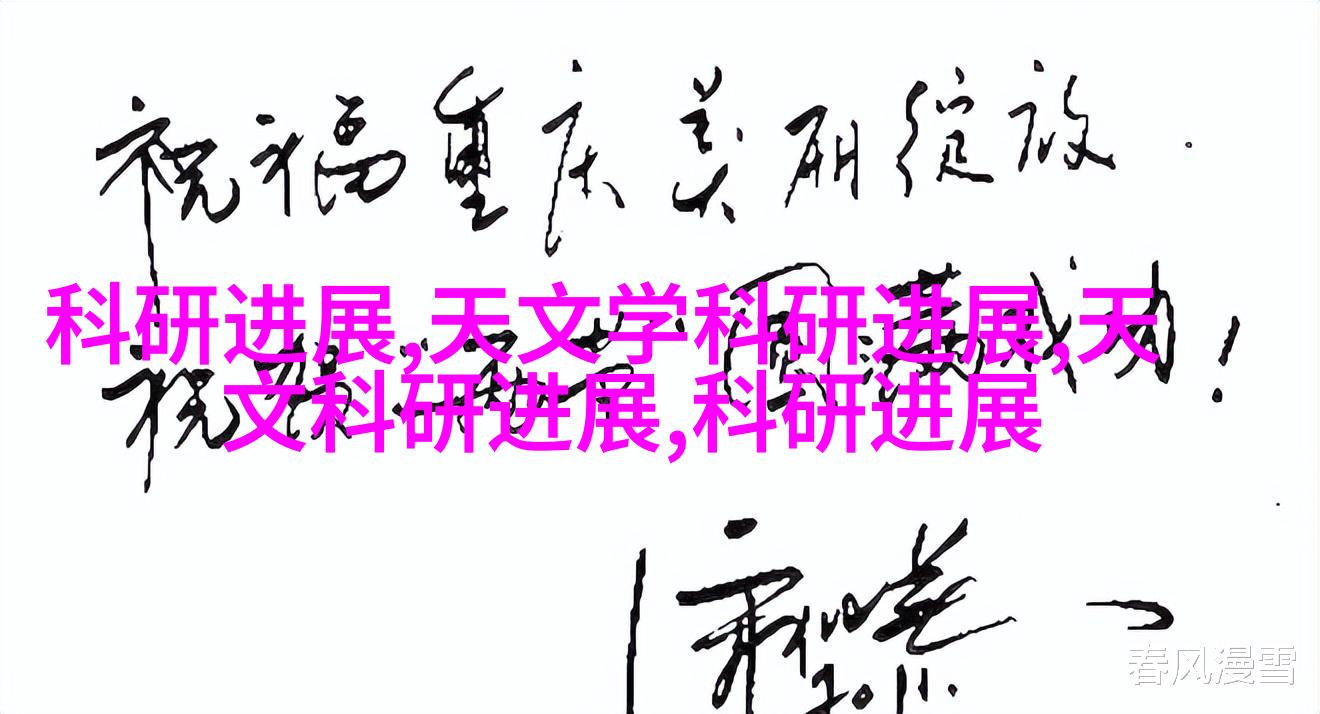 祝福重庆美丽绽放.
科研进展,天文学科研进展,天
文科研进展,科研进展
祝 圆满成功!
2011.
春风漫雪